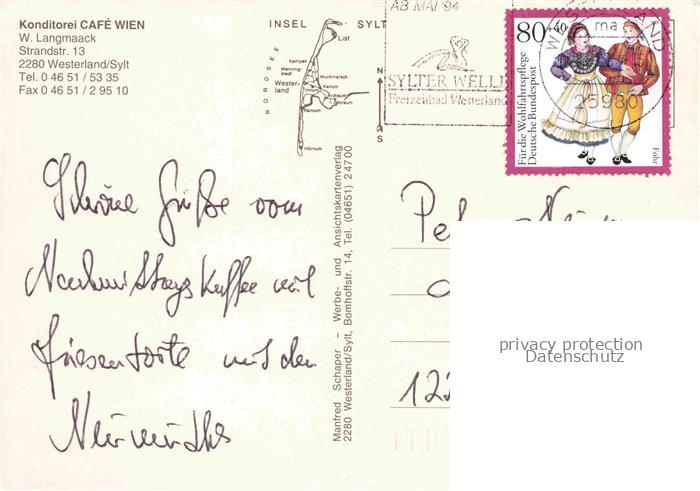 Konditorei CAFÉ WIEN
W. Langmaack
Strandstr. 13
2280 Westerland/Sylt
Tel. 0 46 51 / 53 35
Fax 0 46 51 / 2 95 10
INSEL SYLT
NORDSEE
List
Kampen
Wenning-
stedt
Munkmarsch
Wester-
land
Keitum
Archsum
Morsum
Rantum
Hörnum
N
S
AB MAI '94
SYLTER WELLE
Freizeitbad Westerland
WESTERLAND
ma
25980
80+40
Für die Wohlfahrtspflege
Deutsche Bundespost
Föhr
Schöne Grüße vom
Nachmittagskaffee mit
Friesentorte und den
Manfred Schaper – Werbe- und Ansichtskartenverlag
2280 Westerland/Sylt, Bomhoffstr. 14, Tel. (04651) 24700
122
privacy protection
Datenschutz